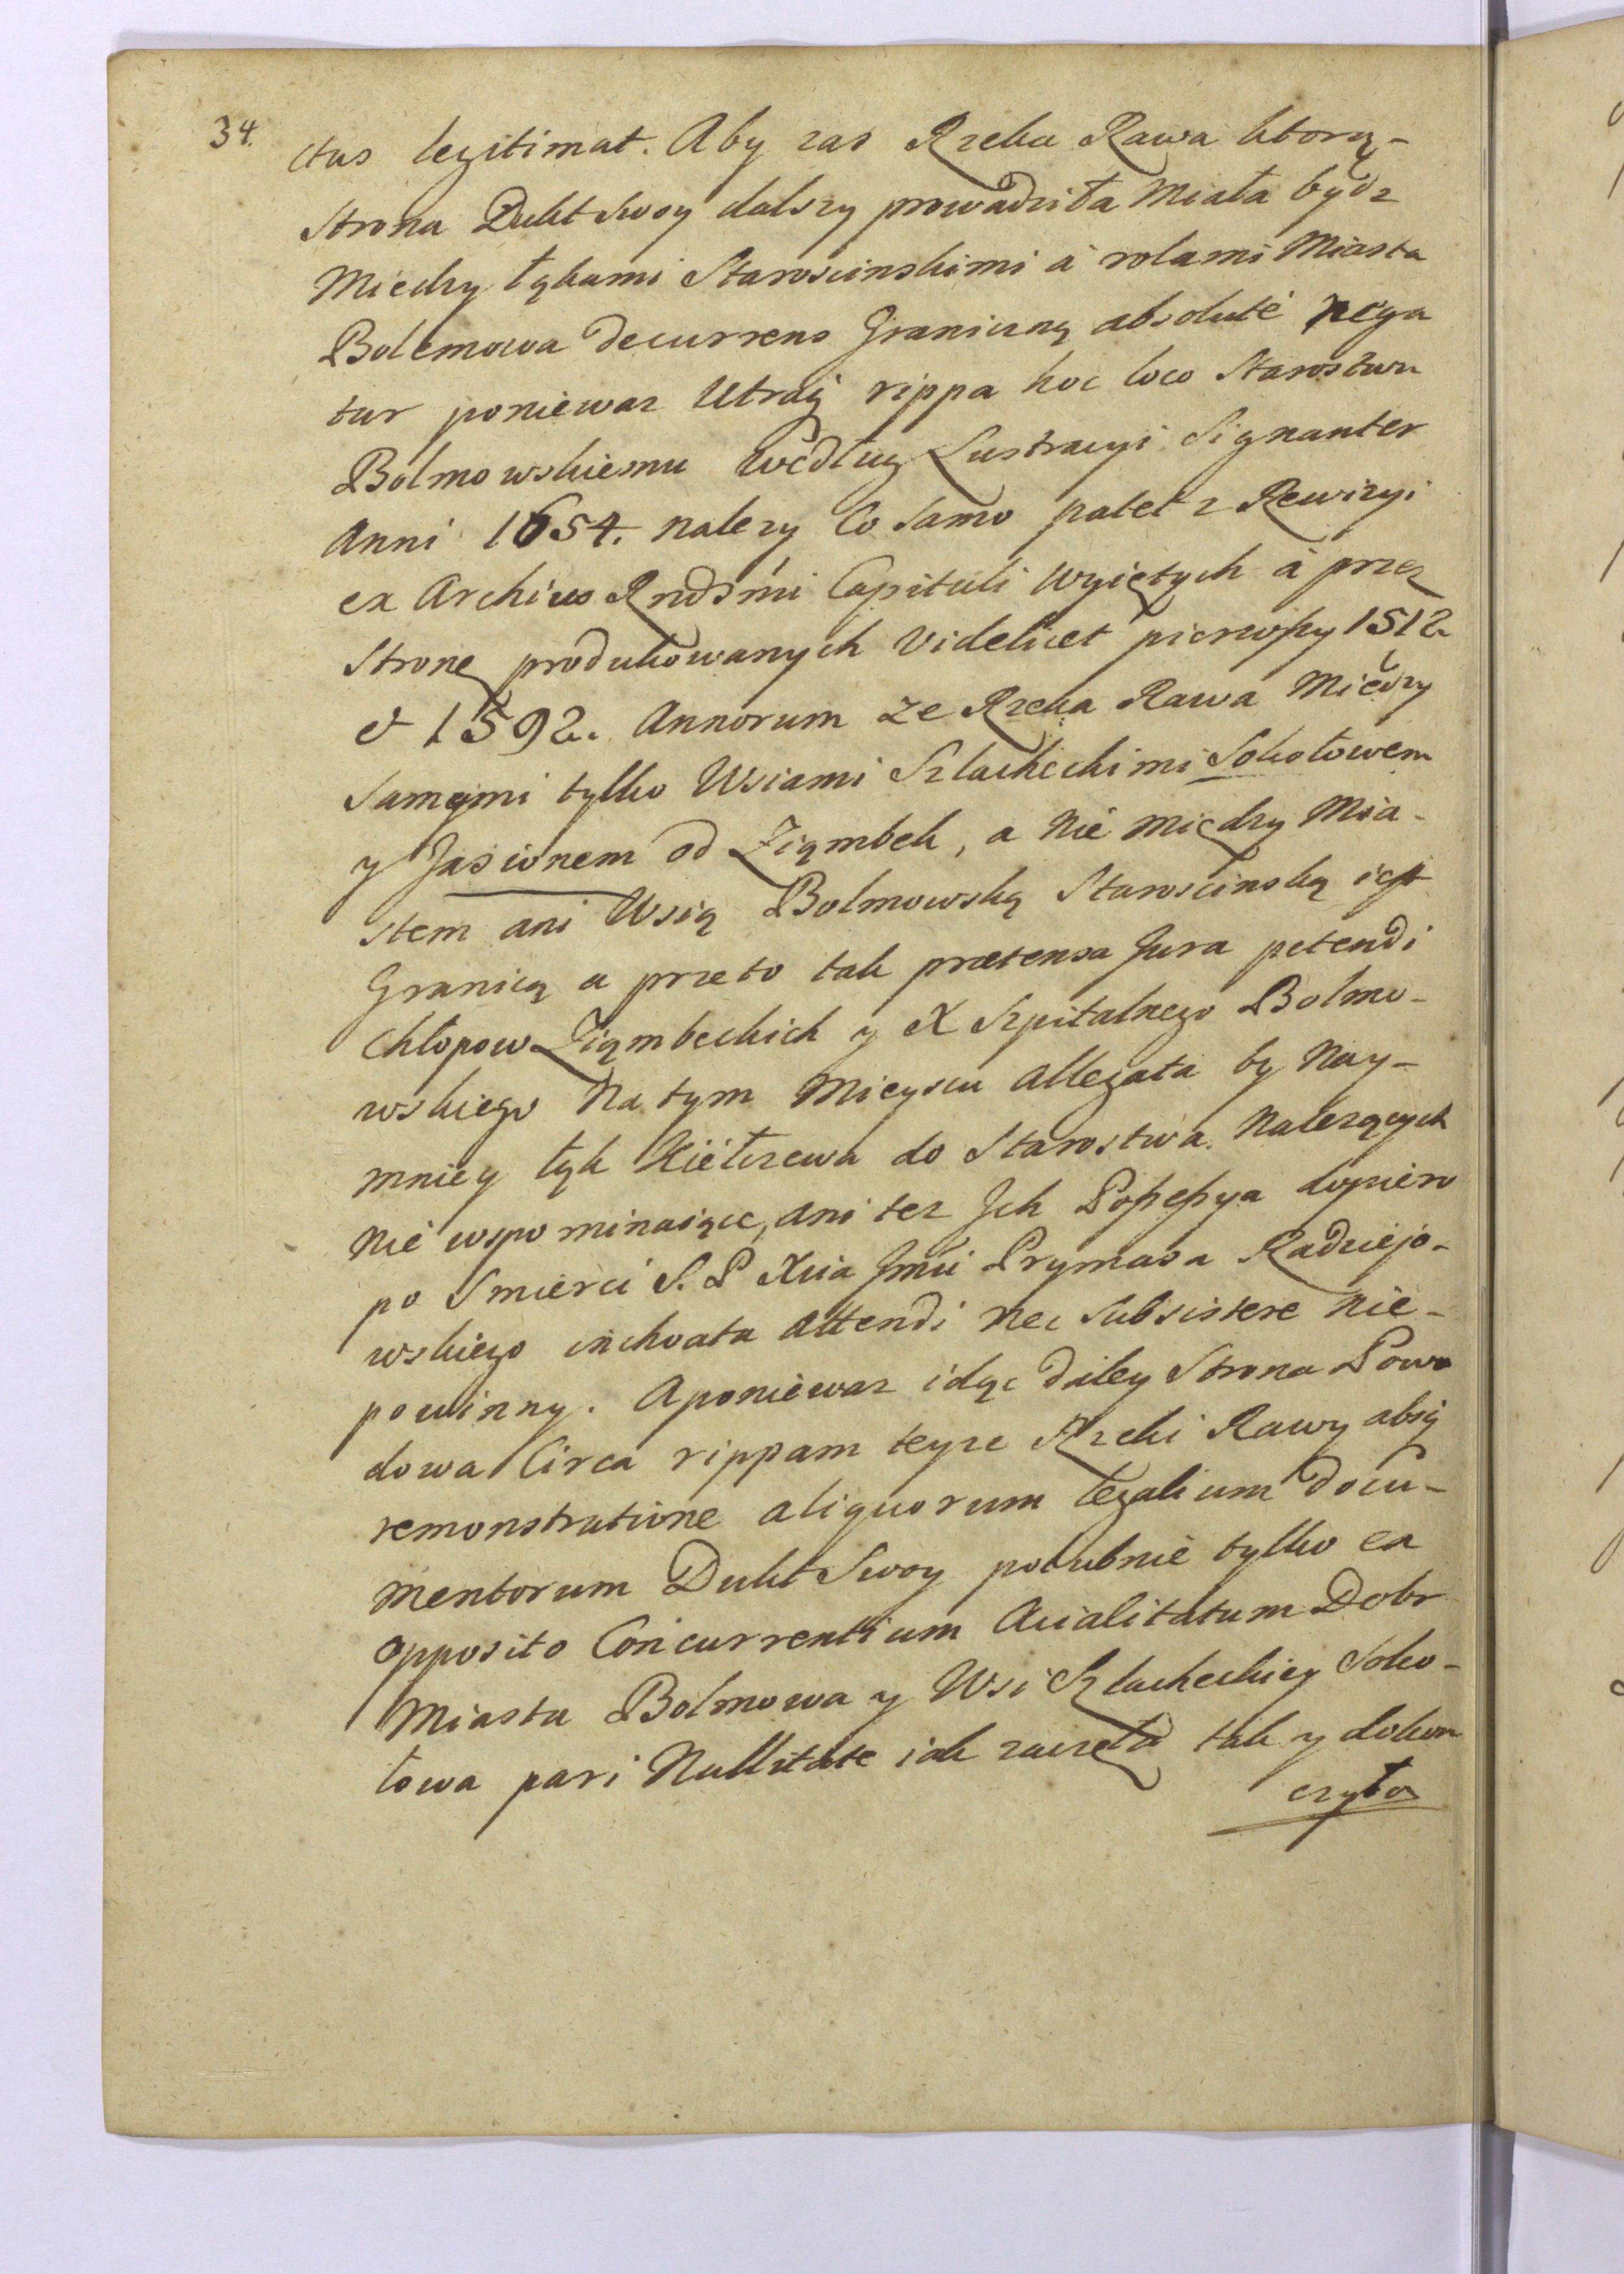 34.
ctus legitimat. Aby zas Rzeka Rawa ktorą-
Strona Dukt Swoy dalszy prowadziła Miała bydz
Miedzy łąkami Staroscinskimi à rolami Miasta
Bolemowa decurrens Graniczną absoluté nega
tur poniewaz Utraq rippa hoc loco Starostwu
Bolmowskiemu według Lustracyi Signanter
Anni 1654. nalezy Co Samo patet z Rewizyi
ex Archivo Rndsmi Capituli wyiętych à przez
Stronę produkowanych videlicet pierwszy 1512
& 1592. Annorum ze Rzeka Rawa Między
Samymi tylko Wsiami Szlacheckimi Sokołowem
y Jasionem od Ziąmbek, a nie między Mia-
stem ani Wsią Bolmowską Staroscinską iest
Granicą a przeto tak prætensa Jura petendi
Chłopow Ziąmbeckich y X Szpitalnego Bolmo-
wskiego Na tym Mieyscu allegata by Nay-
mniey łąk Kiełzewa do Starostwa. Nalezących
nie wspominaiące, ani tez Jch Possessya dopiero
po Smierci S. P Xcia Jmći Prymasa Radziejo-
wskiego inchoata attendi nec Subsistere nie-
powinny. Aponiewaz idąc daley Strona Powo
dowa Circa rippam teyze Rzeki Rawy absq
remonstratione aliquorum legalium docu-
mentorum Dukt Swoy podubnie tylko ex
opposito Concurrentium Acialitatum Dobr
Miasta Bolmowa y Wsi Szlacheckiey Soko-
łowa pari Nullitate iak zaczęła tak y dokon
czyła